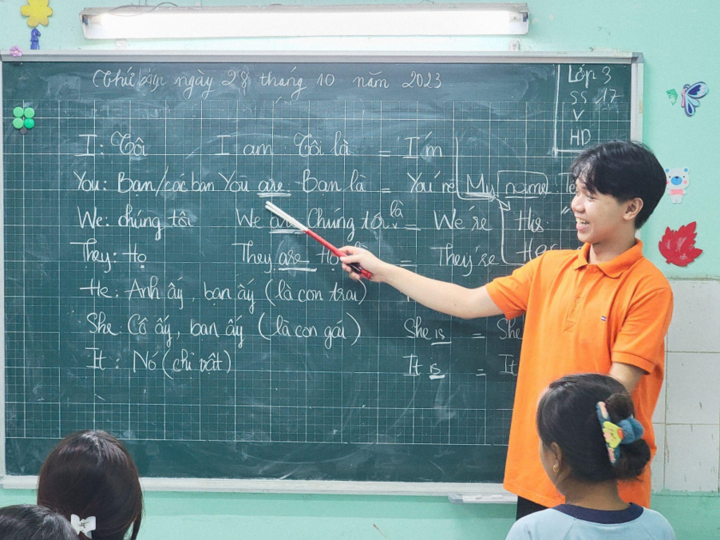 ngày 28 tháng 10 năm 2023
Lớp 3
SS 17
V
HD
I: Tôi I am Tôi là = I'm
You: Bạn/các bạn You are Bạn là = You're My name
We: chúng tôi We are Chúng tôi là = We're His
They: Họ They are = They're
He: Anh ấy, bạn ấy (là con trai)
She: Cô ấy, bạn ấy (là con gái) She is = She
It: Nó (chỉ vật) It is = It